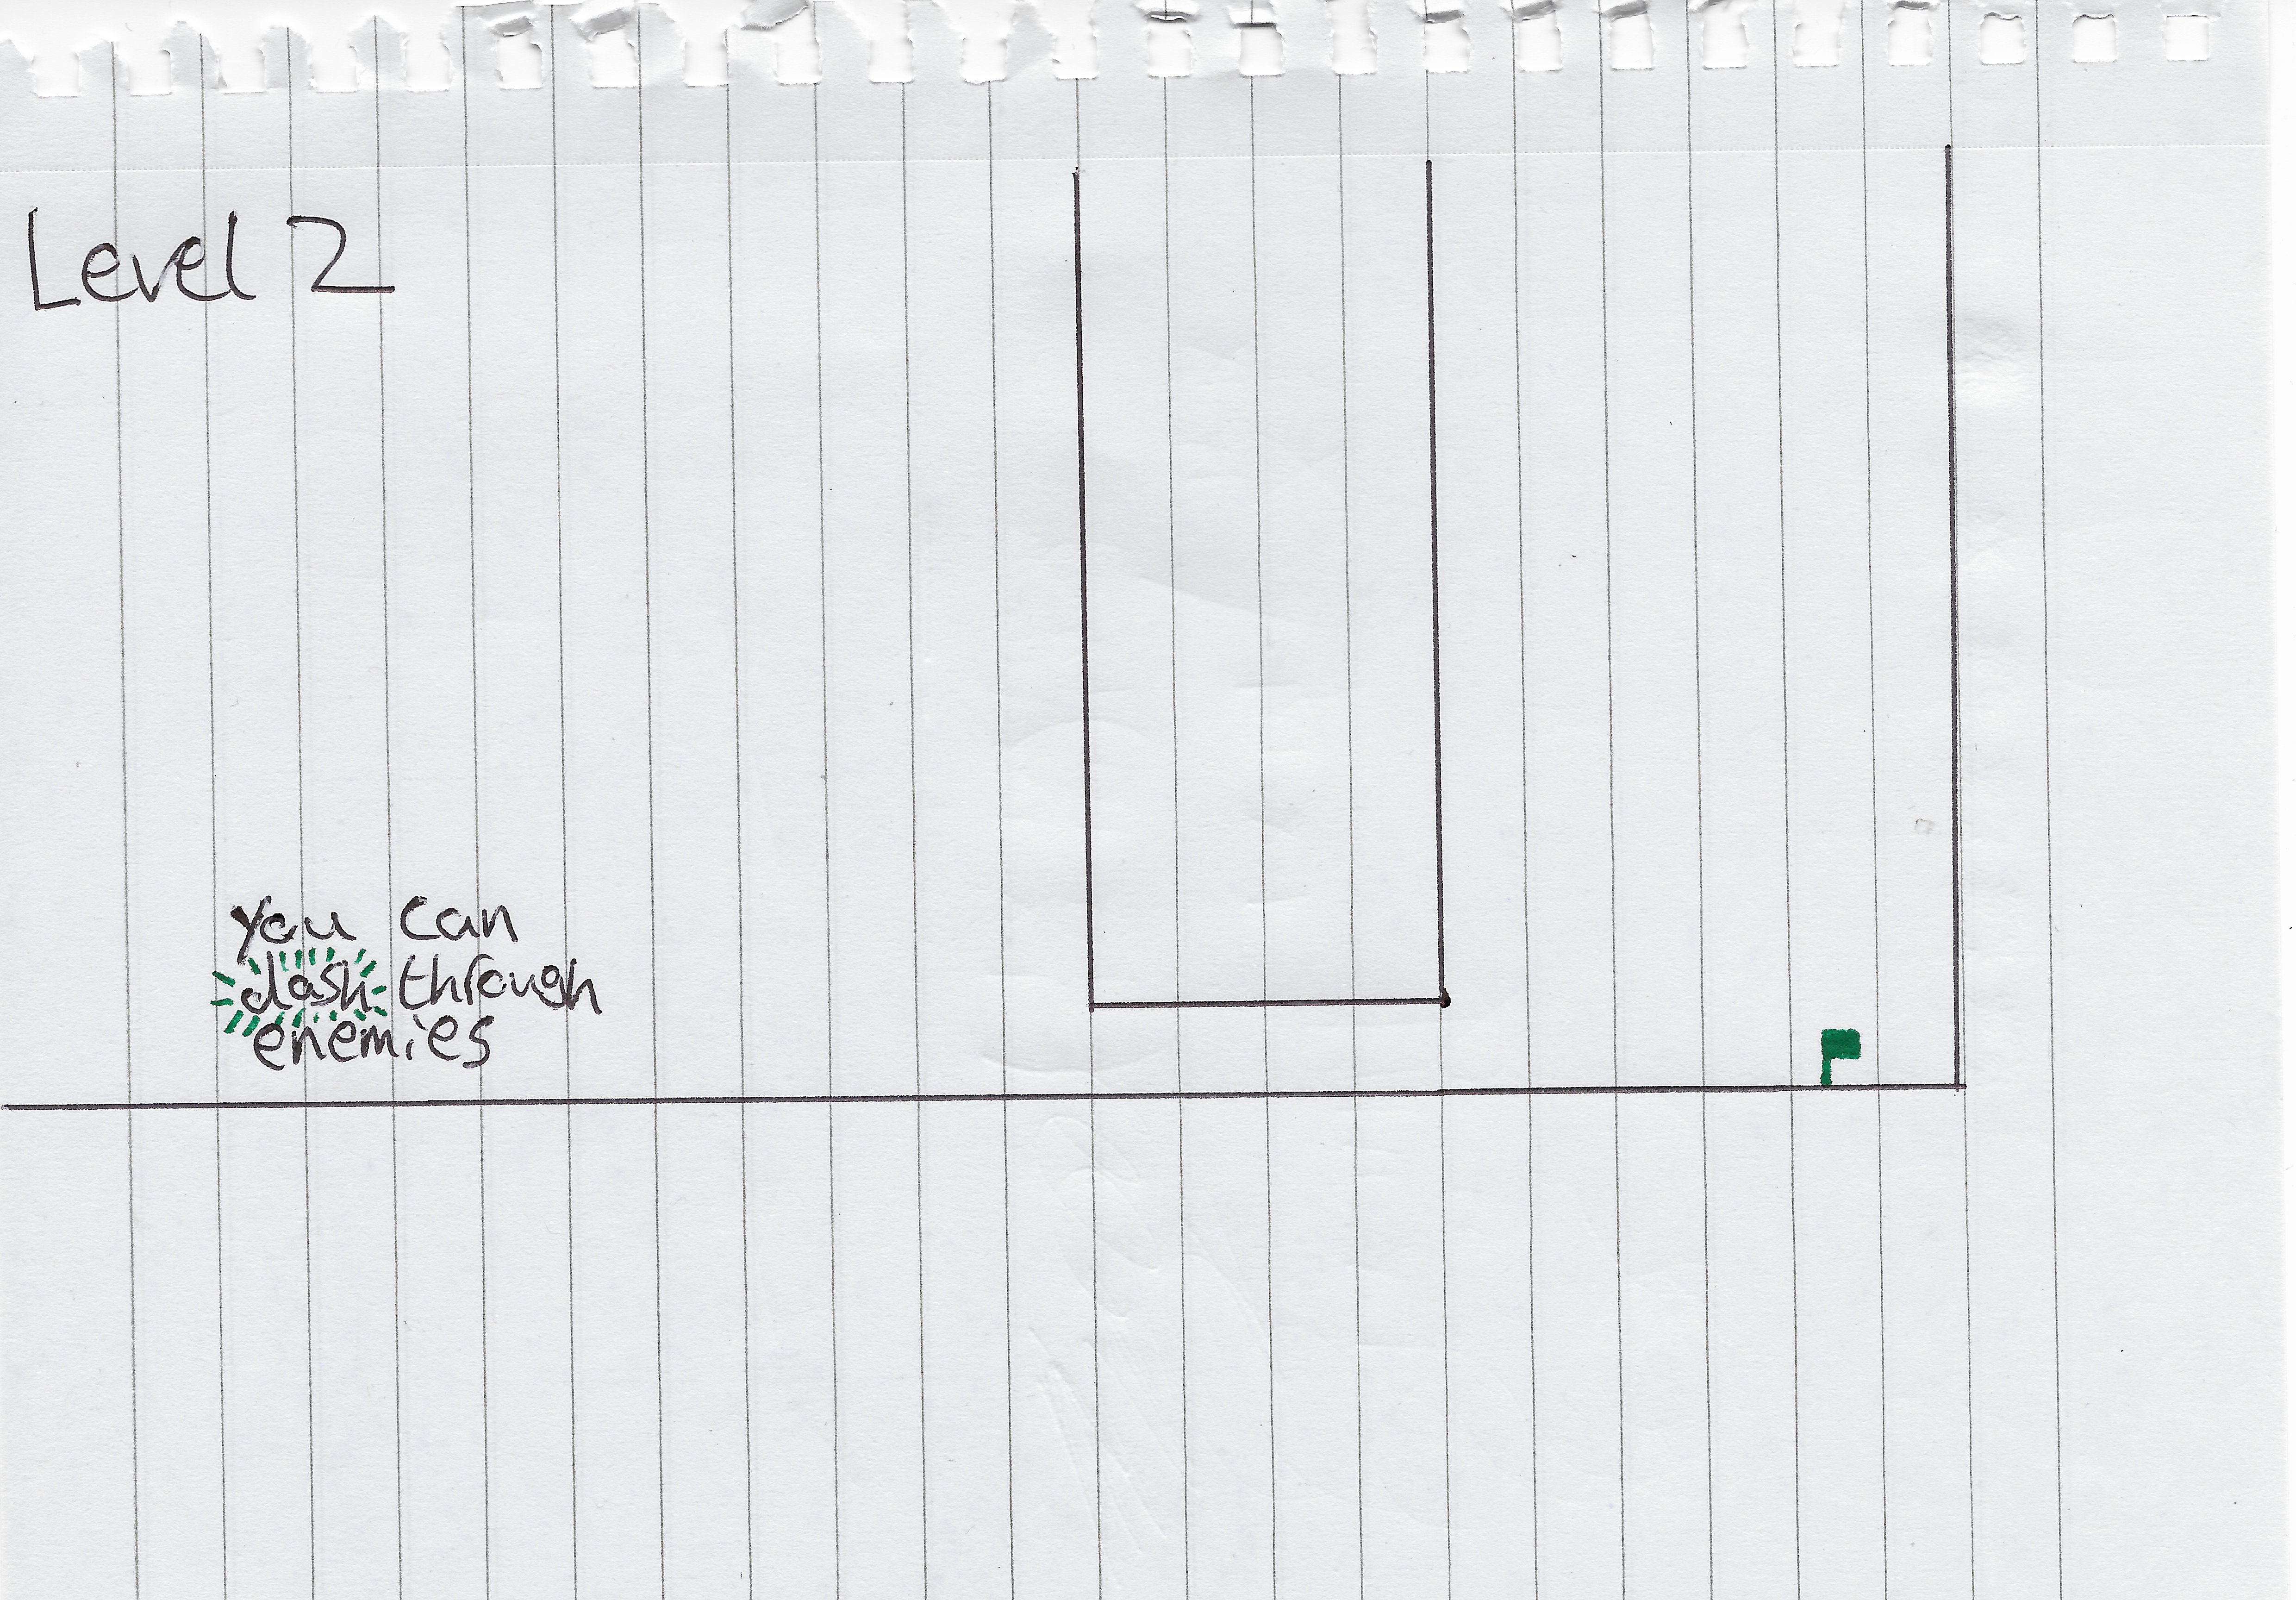 Level 2
you can
dash through
enemies